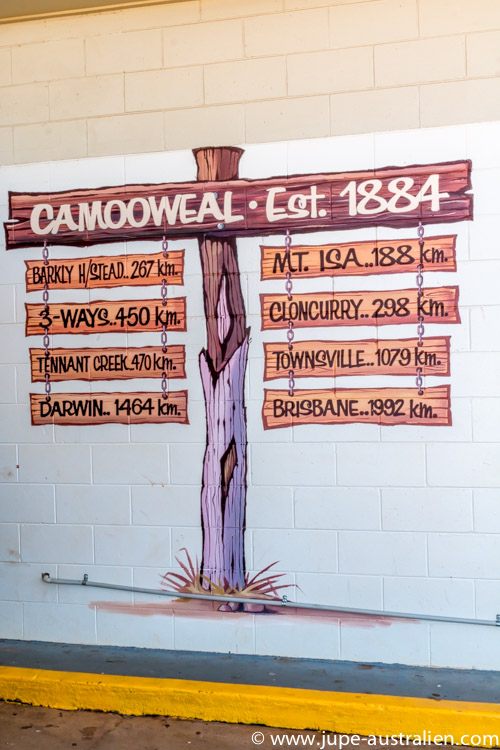 CAMOOWEAL · Est. 1884
BARKLY H/STEAD..267 KM.
3-WAYS.450 KM.
TENNANT CREEK.470 KM.
DARWIN..1464 KM.
MT. ISA..188 KM.
CLONCURRY..298 KM.
TOWNSVILLE..1079 KM.
BRISBANE..1992 KM.
© www.jupe-australien.com